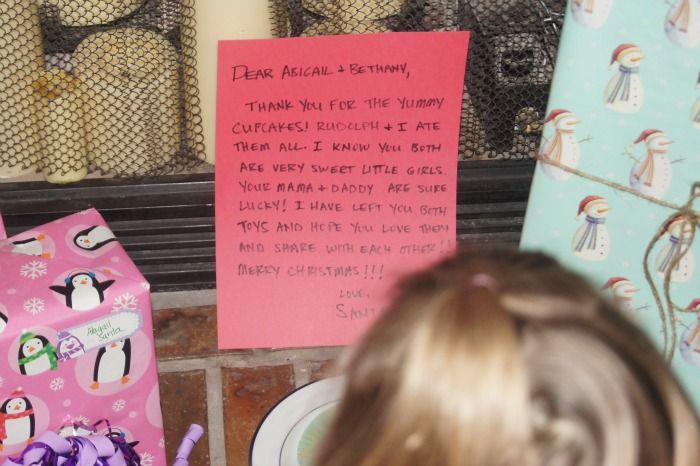 DEAR ABIGAIL + BETHANY,
THANK YOU FOR THE YUMMY
CUPCAKES! RUDOLPH + I ATE
THEM ALL. I KNOW YOU BOTH
ARE VERY SWEET LITTLE GIRLS.
YOUR MAMA + DADDY ARE SURE
LUCKY! I HAVE LEFT YOU BOTH
TOYS AND HOPE YOU LOVE THEM
AND SHARE WITH EACH OTHER!!
MERRY CHRISTMAS!!!
LOVE,
SANT
Abigail
Santa